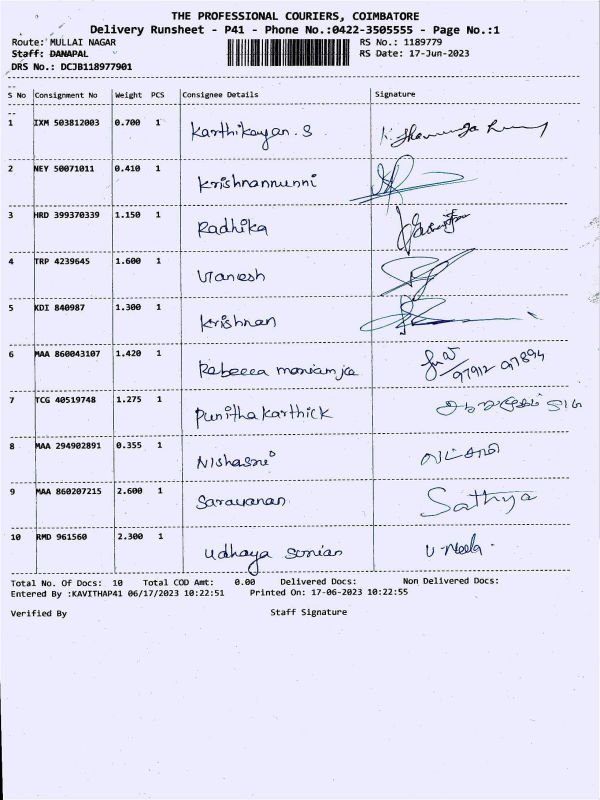 THE PROFESSIONAL COURIERS, COIMBATORE
Delivery Runsheet - P41 - Phone No.:0422-3505555 - Page No.:1
Route: MULLAI NAGAR RS No.: 1189779
Staff: DANAPAL RS Date: 17-Jun-2023
DRS No.: DCJB118977901
S No Consignment No Weight PCS Consignee Details Signature
1 IXM 503812003 0.700 1 Karthikeyan.S
2 NEY 50071011 0.410 1 Krishnannunni
3 HRD 399370339 1.150 1 Radhika
4 TRP 4239645 1.600 1
5 KDI 840987 1.300 1 Krishnan
6 MAA 860043107 1.420 1 Rebecca
97912 97894
7 TCG 40519748 1.275 1 Punitha Karthick
8 MAA 294902891 0.355 1
9 MAA 860207215 2.600 1 Saravanan Sathya
10 RMD 961560 2.300 1 Udhaya U. Neela.
Total No. Of Docs: 10 Total COD Amt: 0.00 Delivered Docs: Non Delivered Docs:
Entered By :KAVITHAP41 06/17/2023 10:22:51 Printed On: 17-06-2023 10:22:55
Verified By Staff Signature